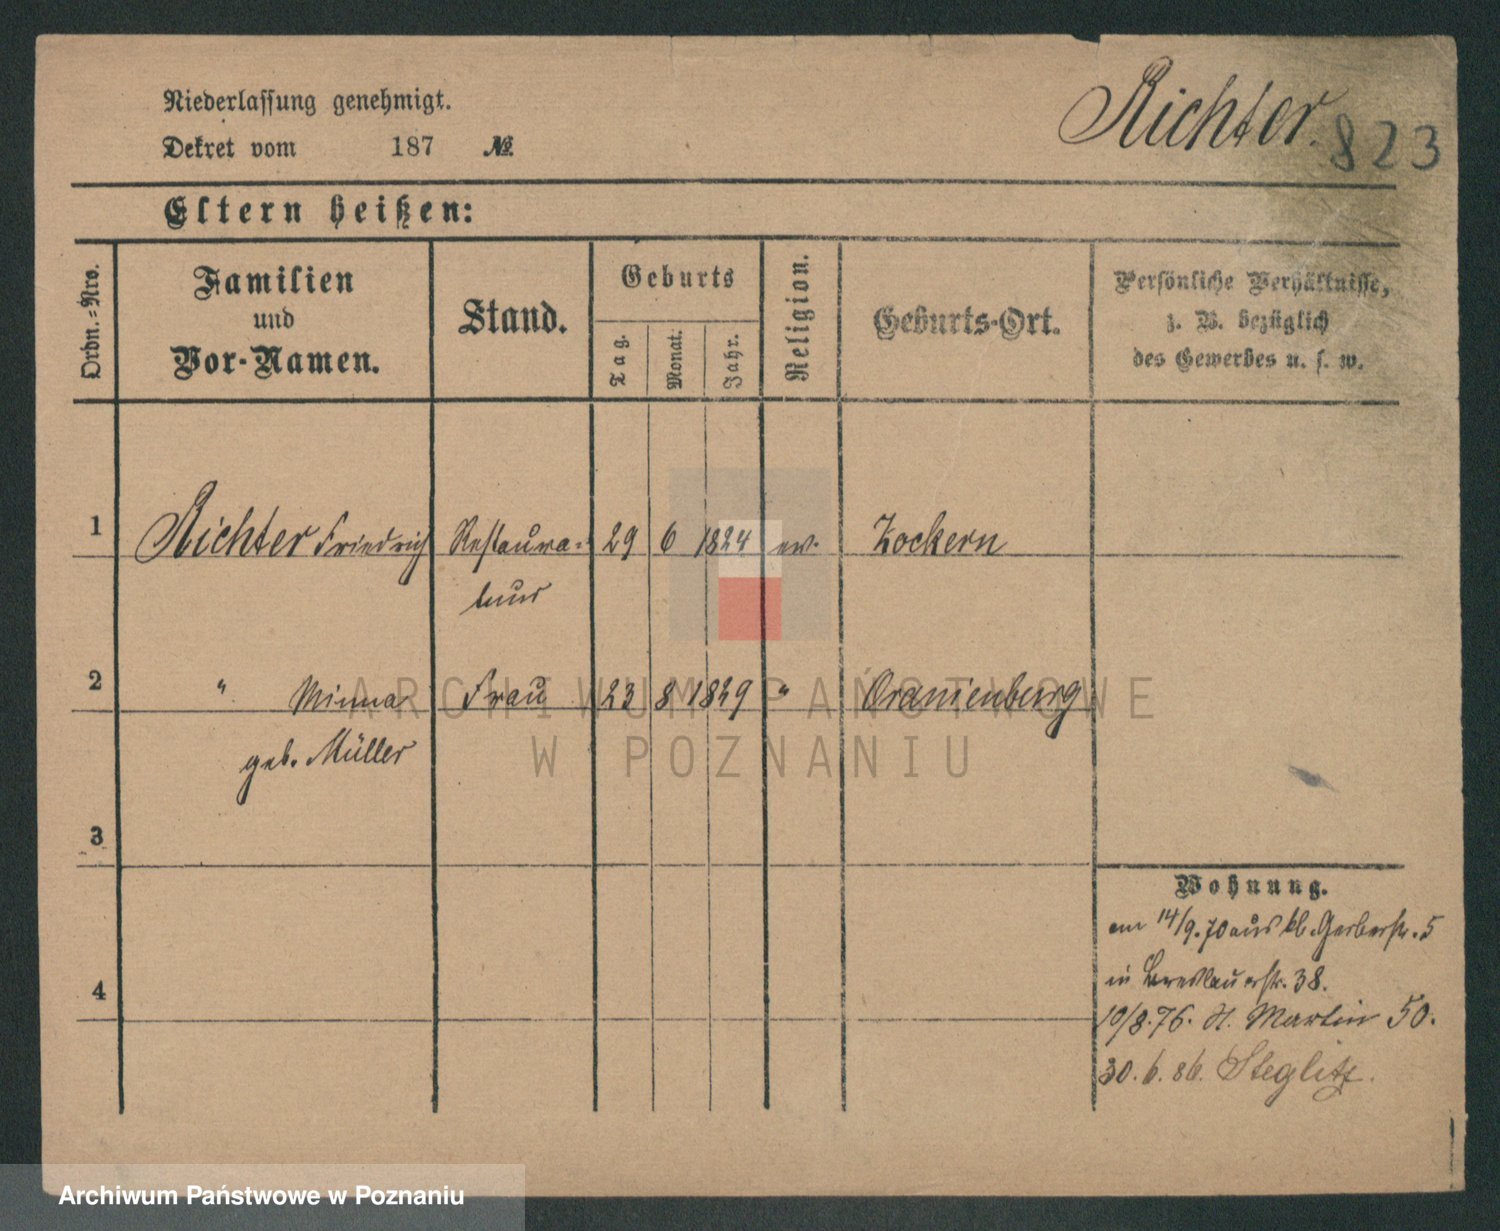 Niederlassung genehmigt.
Dekret vom 187 №
Richter.
823
Eltern heißen:
Ordn.=Nro.
Familien
und
Vor-Namen.
Stand.
Geburts
Tag.
Monat.
Jahr.
Religion.
Geburts-Ort.
Persönliche Verhältnisse,
z. B. bezüglich
des Gewerbes u. s. w.
1 Richter Friedrich Restaura= 29 6 1824 ev. Zockern
teur
2 " Minna Frau 23 8 1829 " Oranienburg
geb. Müller
3
4
Wohnung.
am 14/9.70 aus kl. Gerberstr. 5
in Breslauerstr. 38.
10/8.76. St. Martin 50.
30.6.86. Steglitz.
ARCHIWUM PAŃSTWOWE
W POZNANIU
Archiwum Państwowe w Poznaniu